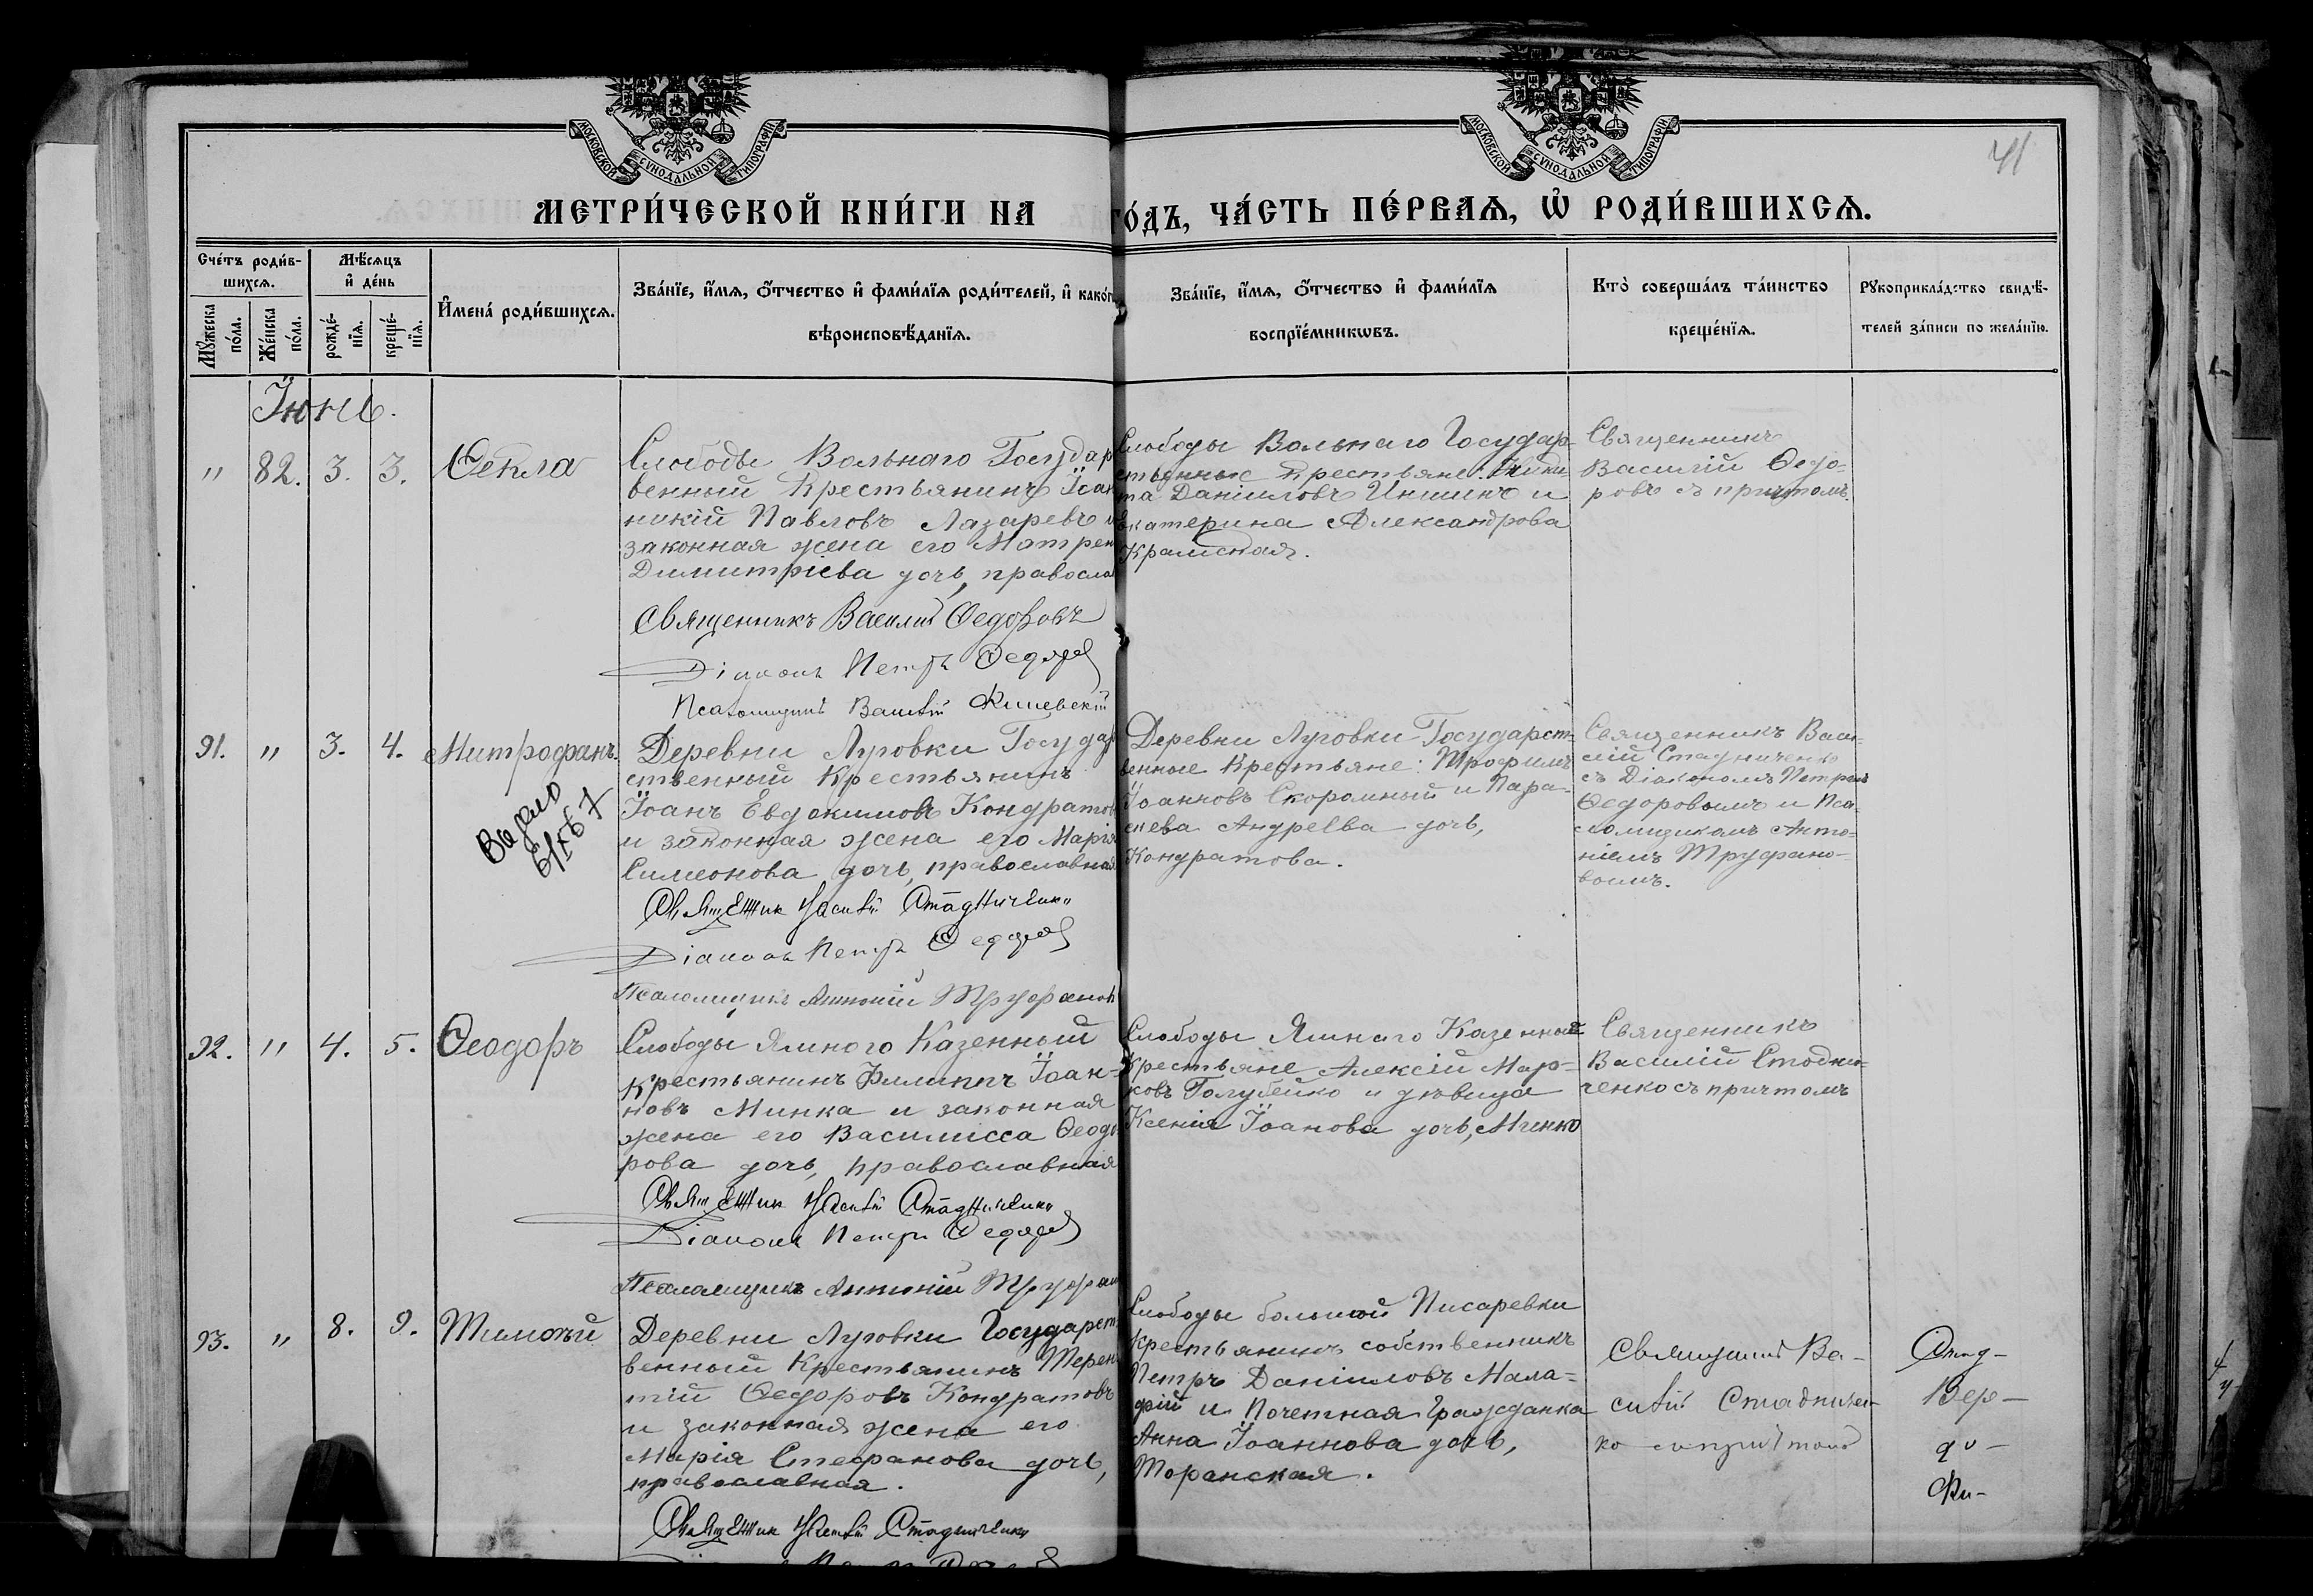 МОСКОВСКОЙ СѴНОДАЛЬНОЙ ТИПОГРАФІИ
МОСКОВСКОЙ СѴНОДАЛЬНОЙ ТИПОГРАФІИ
41
МЕТРИ́ЧЕСКОЙ КНИ́ГИ НА
ГО́ДЪ, ЧА́СТЬ ПЕ́РВАѦ, Ѽ РОДИ́ВШИХСѦ.
Сче́тъ роди́в-
шихсѧ.
Мѣ́сѧцъ
и҆ де́нь
Мꙋ́жеска
по́ла.
Же́нска
по́ла.
рожде́-
нїѧ.
креще́-
нїѧ.
И҆мена̀ роди́вшихсѧ.
Зва́нїе, и҆́мѧ, ѻ҆́тчество и҆ фами́лїѧ роди́телей, и҆ како́г
вѣроисповѣ́данїѧ.
Зва́нїе, и҆́мѧ, ѻ҆́тчество и҆ фами́лїѧ
воспрїе́мникѡвъ.
Кто̀ соверша́лъ та́инство
креще́нїѧ.
Рꙋкоприкла́дство свидѣ́-
телей за́писи по жела́нїю.
Іюнь.
" 82. 3. 3. Ѳекла
Слободы Вольнаго Государ
венный Крестьянинъ Іоан
никій Павловъ Лазаревъ и
законная жена его Матрен
Димитріева дочь, правосла
Священникъ Василій Ѳедоровъ
Діаконъ Петръ Ѳедоровъ
Псаломщикъ Василій
Слободы Вольнаго Государ-
ственные Крестьяне: Ники-
та Даніиловъ и
Екатерина Александрова
Крамская.
Священникъ
Василій Ѳедо-
ровъ съ причтомъ.
91. " 3. 4. Митрофанъ.
Деревни Луговки Государ
ственный Крестьянинъ
Іоанъ Евдокимовъ Кондратов
и законная жена его Марія
Симеонова дочь, православная
Священник Василій Стадниченко
Діаконъ Петръ Ѳедоровъ
Псаломщикъ Антоній Труфанов
Деревни Луговки Государст-
венные Крестьяне: Трофимъ
Іоанновъ Скоромный и Пара-
скева Андреева дочь,
Кондратова.
Священникъ Васи-
лій Стадниченко
съ Діакономъ Петромъ
Ѳедоровымъ и Пса-
ломщикомъ Анто-
ніемъ Труфано-
вымъ.
92. " 4. 5. Ѳеодоръ
Слободы Ямного Казенный
Крестьянинъ Филиппъ Іоан-
новъ Минка и законная
жена его Василисса Ѳеодо
рова дочь, православная
Священник Василій Стадниченко
Діаконъ Петръ Ѳедоровъ
Псаломщикъ Антоній Труфан
Слободы Ямнаго Казенные
Крестьяне Алексій Мар-
ковъ Голубейко и дѣвица
Ксенія Іоанова дочь, Минко
Священникъ
Василій Стадни-
ченко съ причтомъ
93. " 8. 9. Тимоѳей
Деревни Луговки Государст
венный Крестьянинъ Терен
тій Ѳедоровъ Кондратовъ
и законная жена его
Марія Стефанова дочь,
православная.
Священник Василій Стадниченко
Слободы большой Писаревки
Крестьянинъ собственникъ
Петръ Даніиловъ Мала-
дій и Почетная Гражданка
Анна Іоаннова дочь,
Торанская.
Священникъ Ва-
силій Стадничен-
ко съ причтомъ